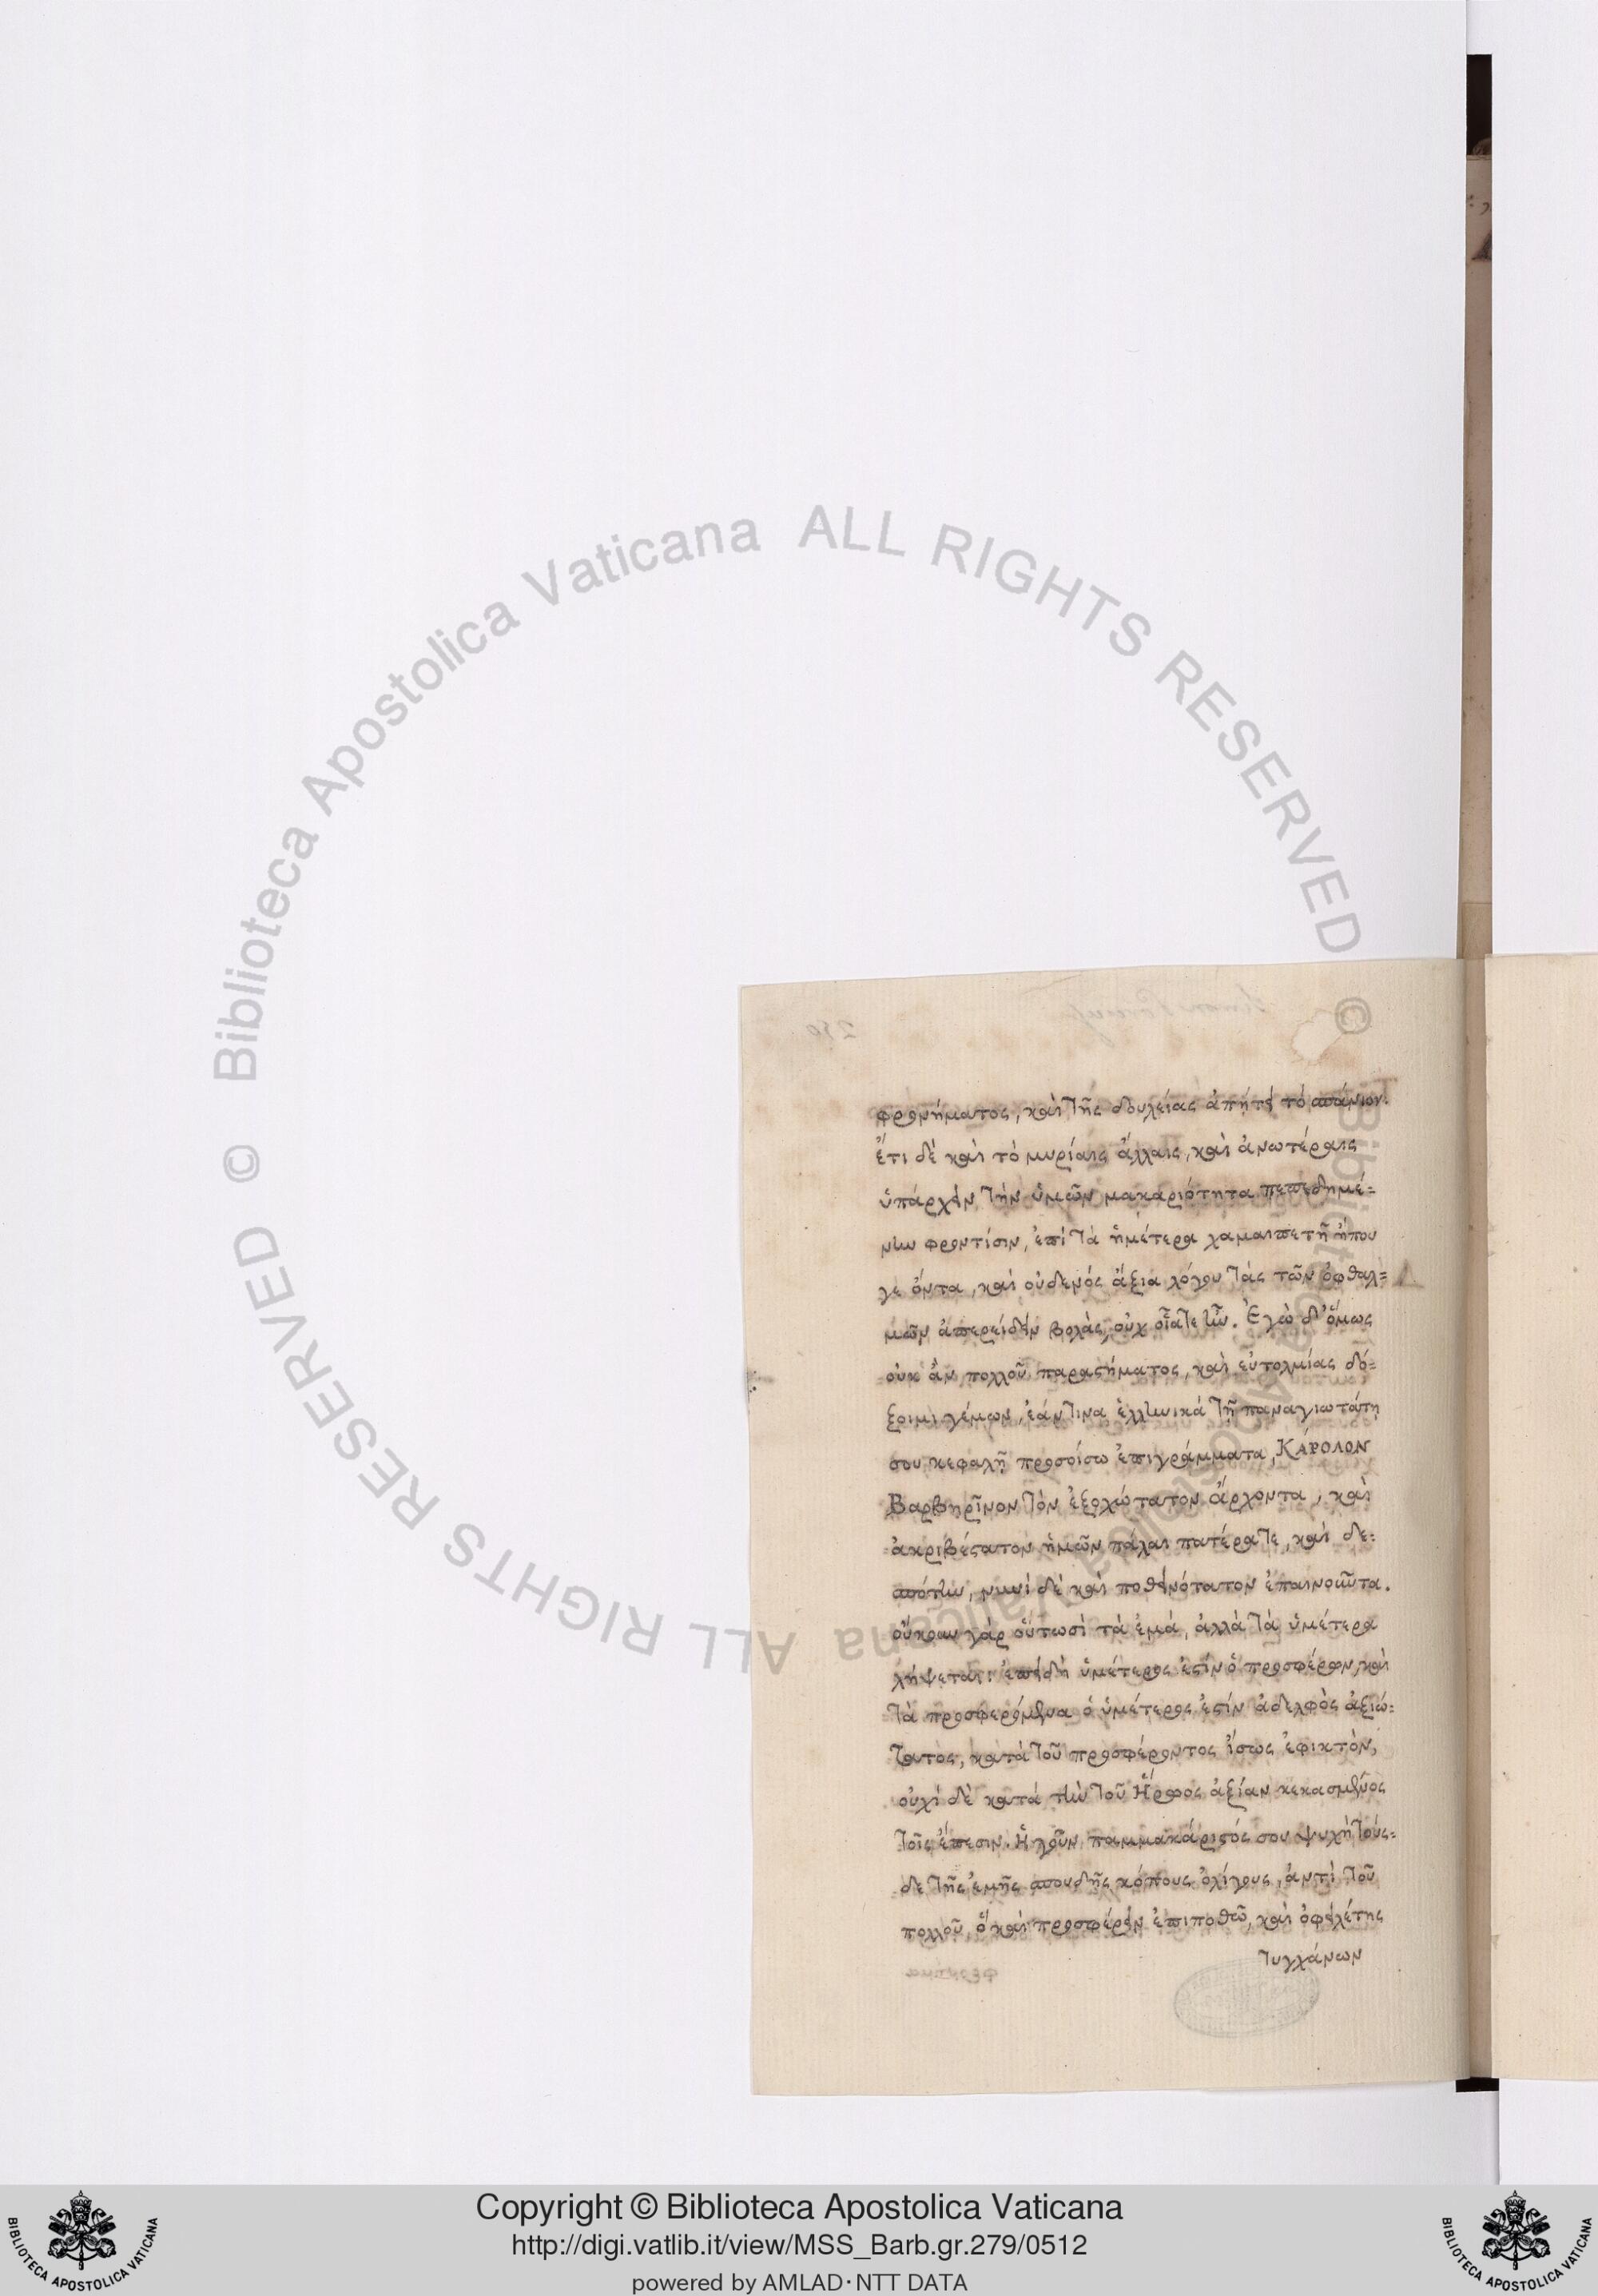 φρονήματος, καὶ τῆς δουλείας ἀπῄτει τὸ σπάνιον.
ἔτι δὲ καὶ τὸ μυρίαις ἄλλαις, καὶ ἀνωτέραις
ὑπάρχειν τὴν ὑμῶν μακαριότητα πεπεδημέ=
νην φροντίσιν, ἐπὶ τὰ ἡμέτερα χαμαιπετῆ ἤπου
γε ὄντα, καὶ οὐδενός ἄξια λόγου τὰς τῶν ὀφθαλ=
μῶν ἀπερείδειν βολὰς, οὐχ οἷάτε ἦν. Ἐγὼ δ' ὅμως
οὐκ ἂν πολλοῦ παραστήματος, καὶ εὐτολμίας δό=
ξοιμι γέμων, ἐάν τινα ἑλληνικά τῇ παναγιωτάτῃ
σου κεφαλῇ προσοίσω ἐπιγράμματα, ΚΆΡΟΛΟΝ
Βαρβηρῖνον τὸν ἐξοχώτατον ἄρχοντα, καὶ
ἀκριβέστατον ἡμῶν πάλαι πατέρατε, καὶ δε=
σπότην, νυνὶ δὲ καὶ ποθεινότατον ἐπαινοῦντα.
οὔκουν γὰρ οὑτωσὶ τὰ ἐμά, ἀλλὰ τὰ ὑμέτερα
λήψεται: ἐπειδὴ ὑμέτερος ἐστίν ὁ προσφέρων, καὶ
τὰ προσφερόμενα ὁ ὑμέτερος ἐστίν ἀδελφὸς ἀξιώ=
τατος, κατὰ τοῦ προσφέροντος ἴσως ἐφικτὸν,
οὐχὶ δὲ κατά τὴν τοῦ Ἥρωος ἀξίαν κεκασμένος
τοῖς ἔπεσιν. Ἡ γοῦν παμμακάριστός σου ψυχὴ τούς=
δε τῆς ἐμῆς σπουδῆς κόπους ὀλίγους, ἀντὶ τοῦ
πολλοῦ, ὅ καὶ προσφέρειν ἐπιποθῶ, καὶ ὀφειλέτης
τυγχάνων
Copyright © Biblioteca Apostolica Vaticana
http://digi.vatlib.it/view/MSS_Barb.gr.279/0512
powered by AMLAD·NTT DATA
© Biblioteca Apostolica Vaticana ALL RIGHTS RESERVED
© Biblioteca Apostolica Vaticana ALL RIGHTS RESERVED
BIBLIOTECA APOSTOLICA VATICANA
BIBLIOTECA APOSTOLICA VATICANA